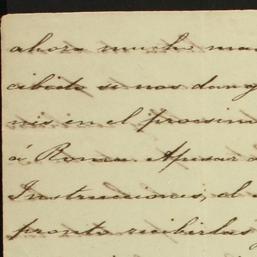 ahora mucho mas
cibido si nos dan g
nis en el procsim
á Roman. Apesar d
Instrucciones, el
pronto recibirlas